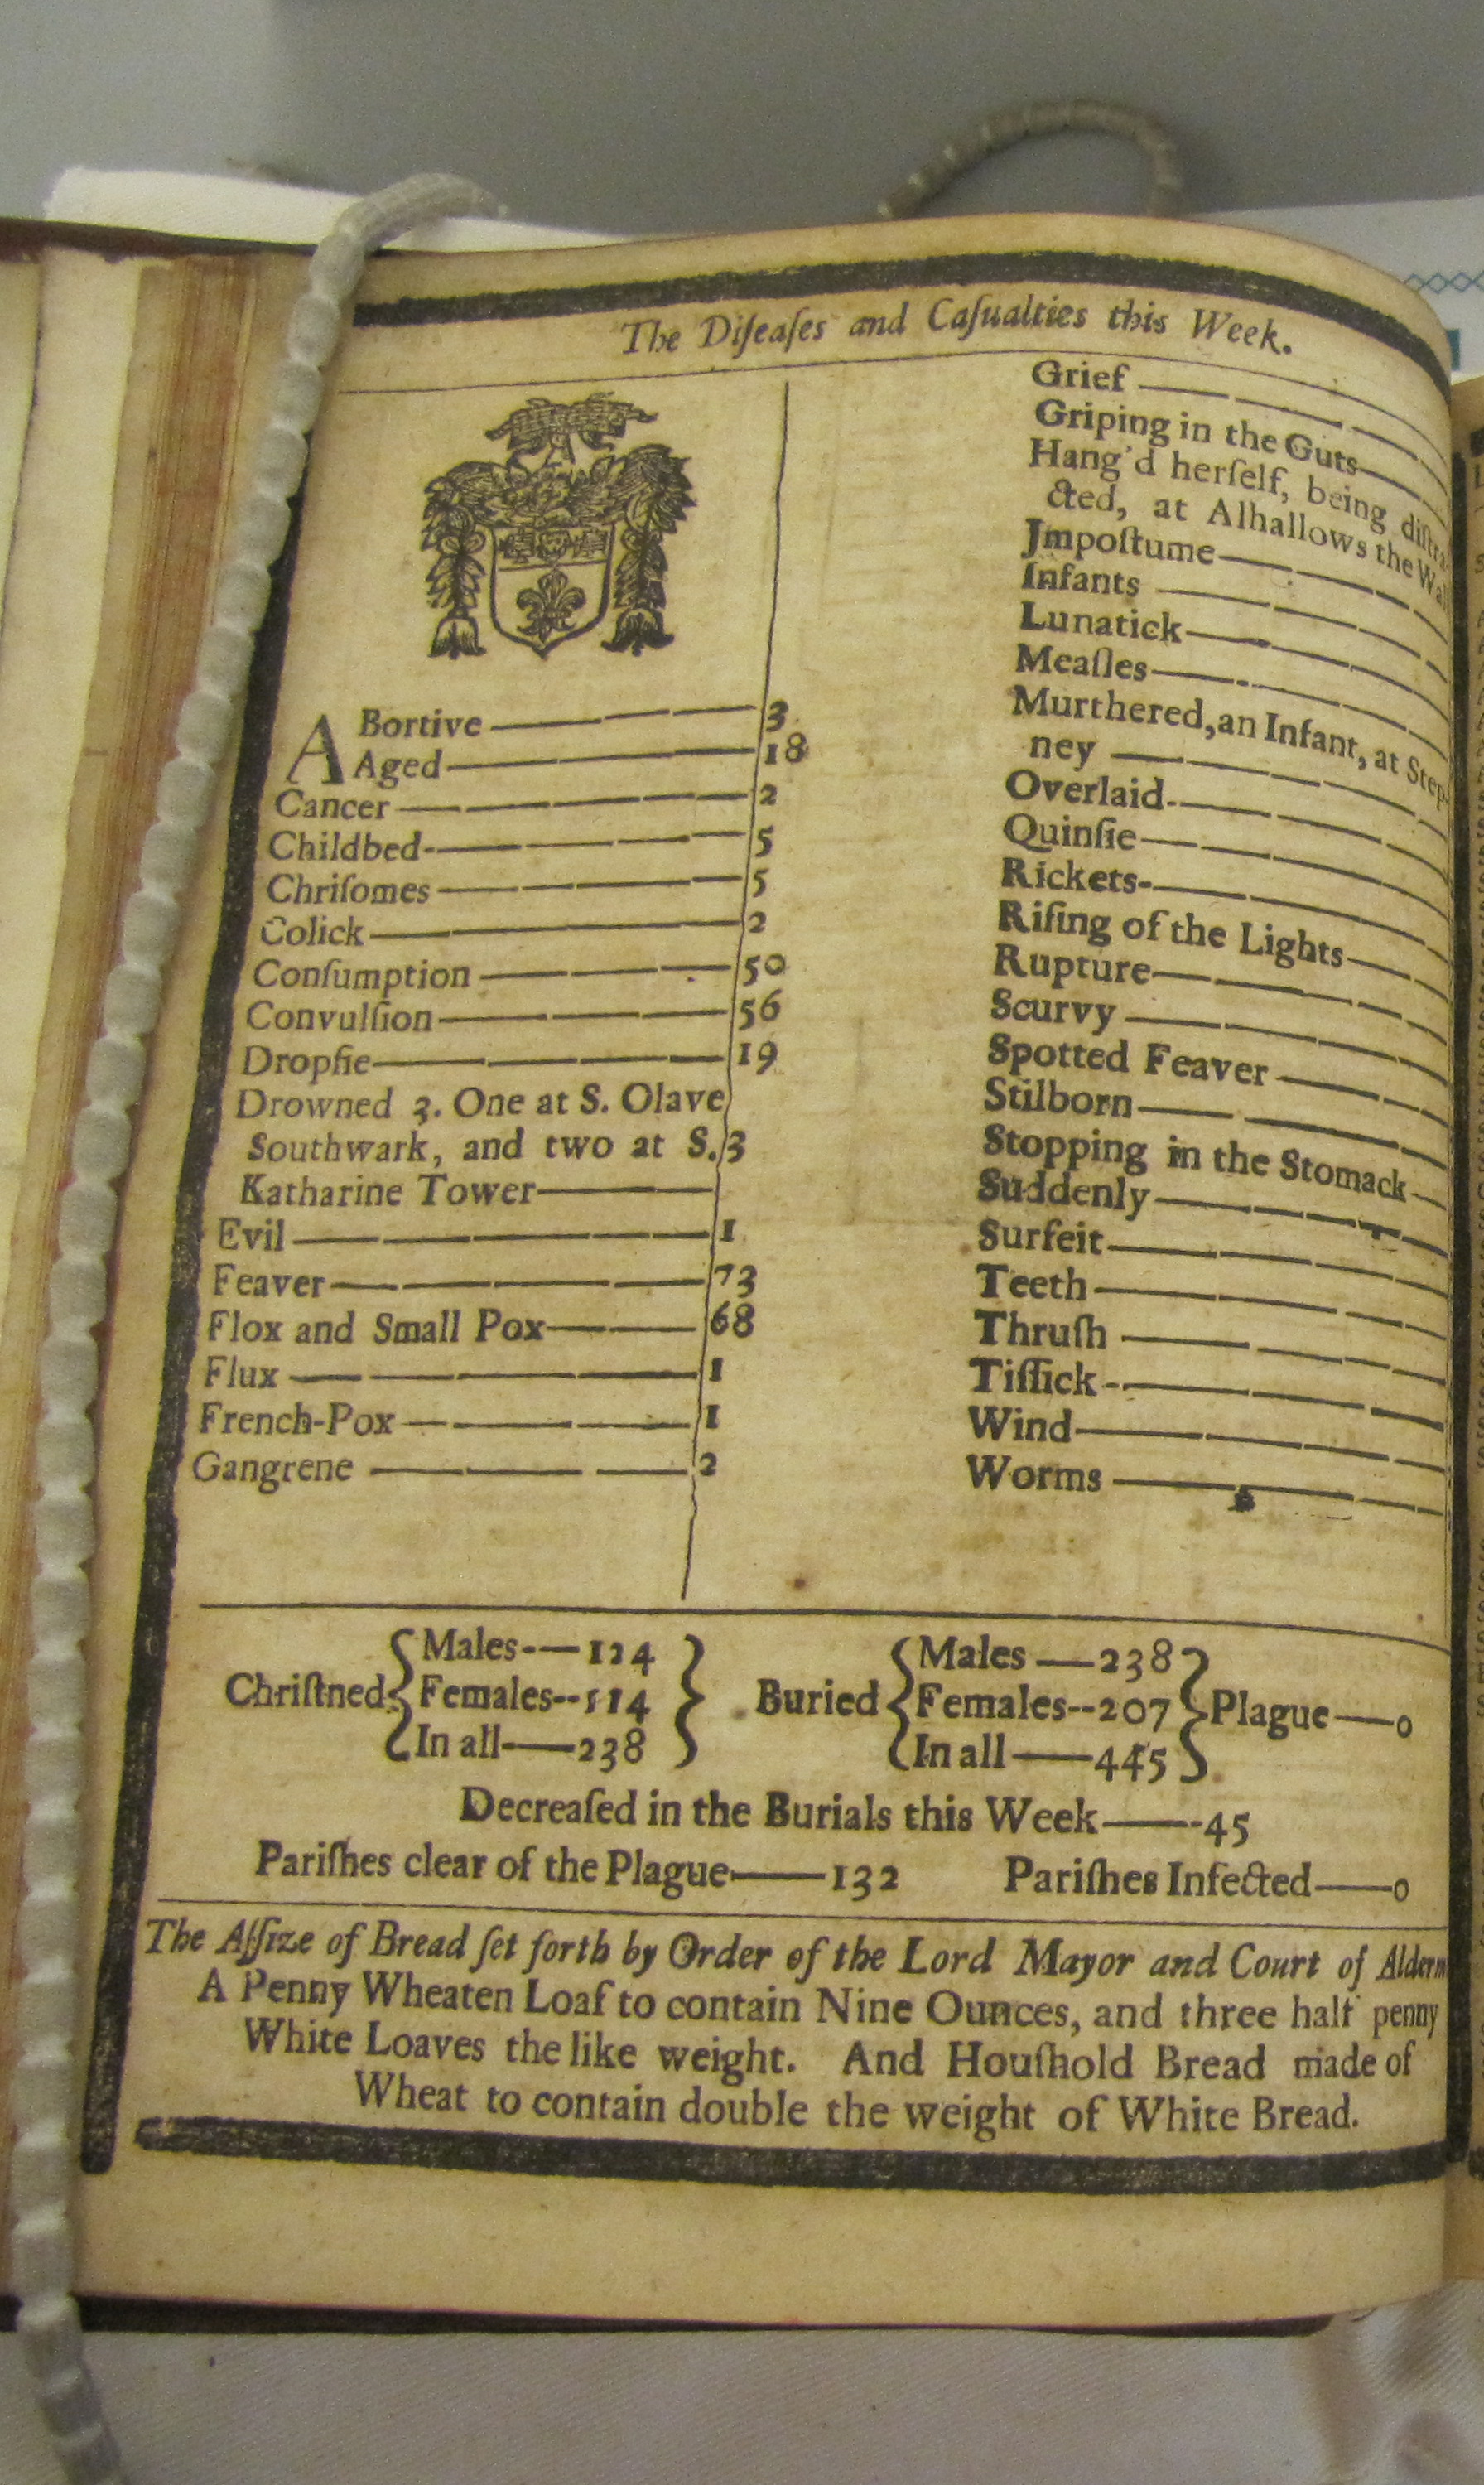 The Diſeaſes and Caſualties this Week.
ABortive 3
Aged 18
Cancer 2
Childbed 5
Chriſomes 5
Colick 2
Conſumption 50
Convulſion 56
Dropſie 19
Drowned 3. One at S. Olave
Southwark, and two at S. 3
Katharine Tower
Evil 1
Feaver 73
Flox and Small Pox 68
Flux 1
French-Pox 1
Gangrene 2
Grief
Griping in the Guts
Hang'd herſelf, being diſtra-
cted, at Alhallows the
Jmpoſtume
Infants
Lunatick
Meaſles
Murthered, an Infant, at Step-
ney
Overlaid
Quinſie
Rickets
Riſing of the Lights
Rupture
Scurvy
Spotted Feaver
Stilborn
Stopping in the Stomack
Suddenly
Surfeit
Teeth
Thruſh
Tiſſick
Wind
Worms
Chriſtned { Males 124 } Buried { Males 238 } Plague 0
Females 114 Females 207
In all 238 In all 445
Decreaſed in the Burials this Week 45
Pariſhes clear of the Plague 132 Pariſhes Infected 0
The Aſſize of Bread ſet forth by Order of the Lord Mayor and Court of
A Penny Wheaten Loaf to contain Nine Ounces, and three half penny
White Loaves the like weight. And Houſhold Bread made of
Wheat to contain double the weight of White Bread.